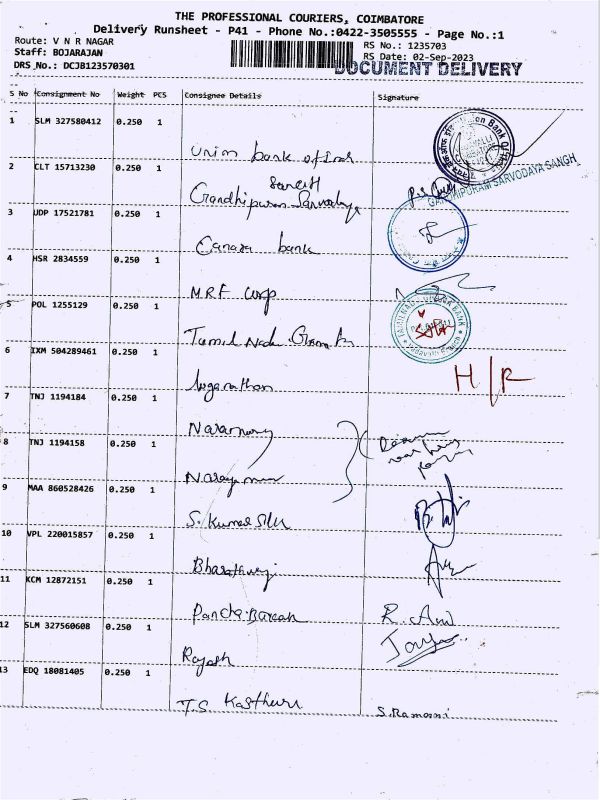 THE PROFESSIONAL COURIERS, COIMBATORE
Delivery Runsheet - P41 - Phone No.:0422-3505555 - Page No.:1
Route: V N R NAGAR
RS No.: 1235703
Staff: BOJARAJAN
RS Date: 02-Sep-2023
DRS No.: DCJB123570301
DOCUMENT DELIVERY
S No Consignment No Weight PCS Consignee Details Signature
1 SLM 327580412 0.250 1 Union bank of
2 CLT 15713230 0.250 1 Gandhipuram Sarvodaya
GANDHIPURAM SARVODAYA SANGH
3 UDP 17521781 0.250 1 Canara bank
4 HSR 2834559 0.250 1 MRF Corp
5 POL 1255129 0.250 1 Tamil Nadu
6 IXM 504289461 0.250 1 H/R
7 TNJ 1194184 0.250 1
8 TNJ 1194158 0.250 1
9 MAA 860528426 0.250 1 S. Kumar Silk
10 VPL 220015857 0.250 1
11 KCM 12872151 0.250 1
12 SLM 327560608 0.250 1 Rajesh
13 EDQ 18081405 0.250 1 T.S Kasthuri S.Ramani